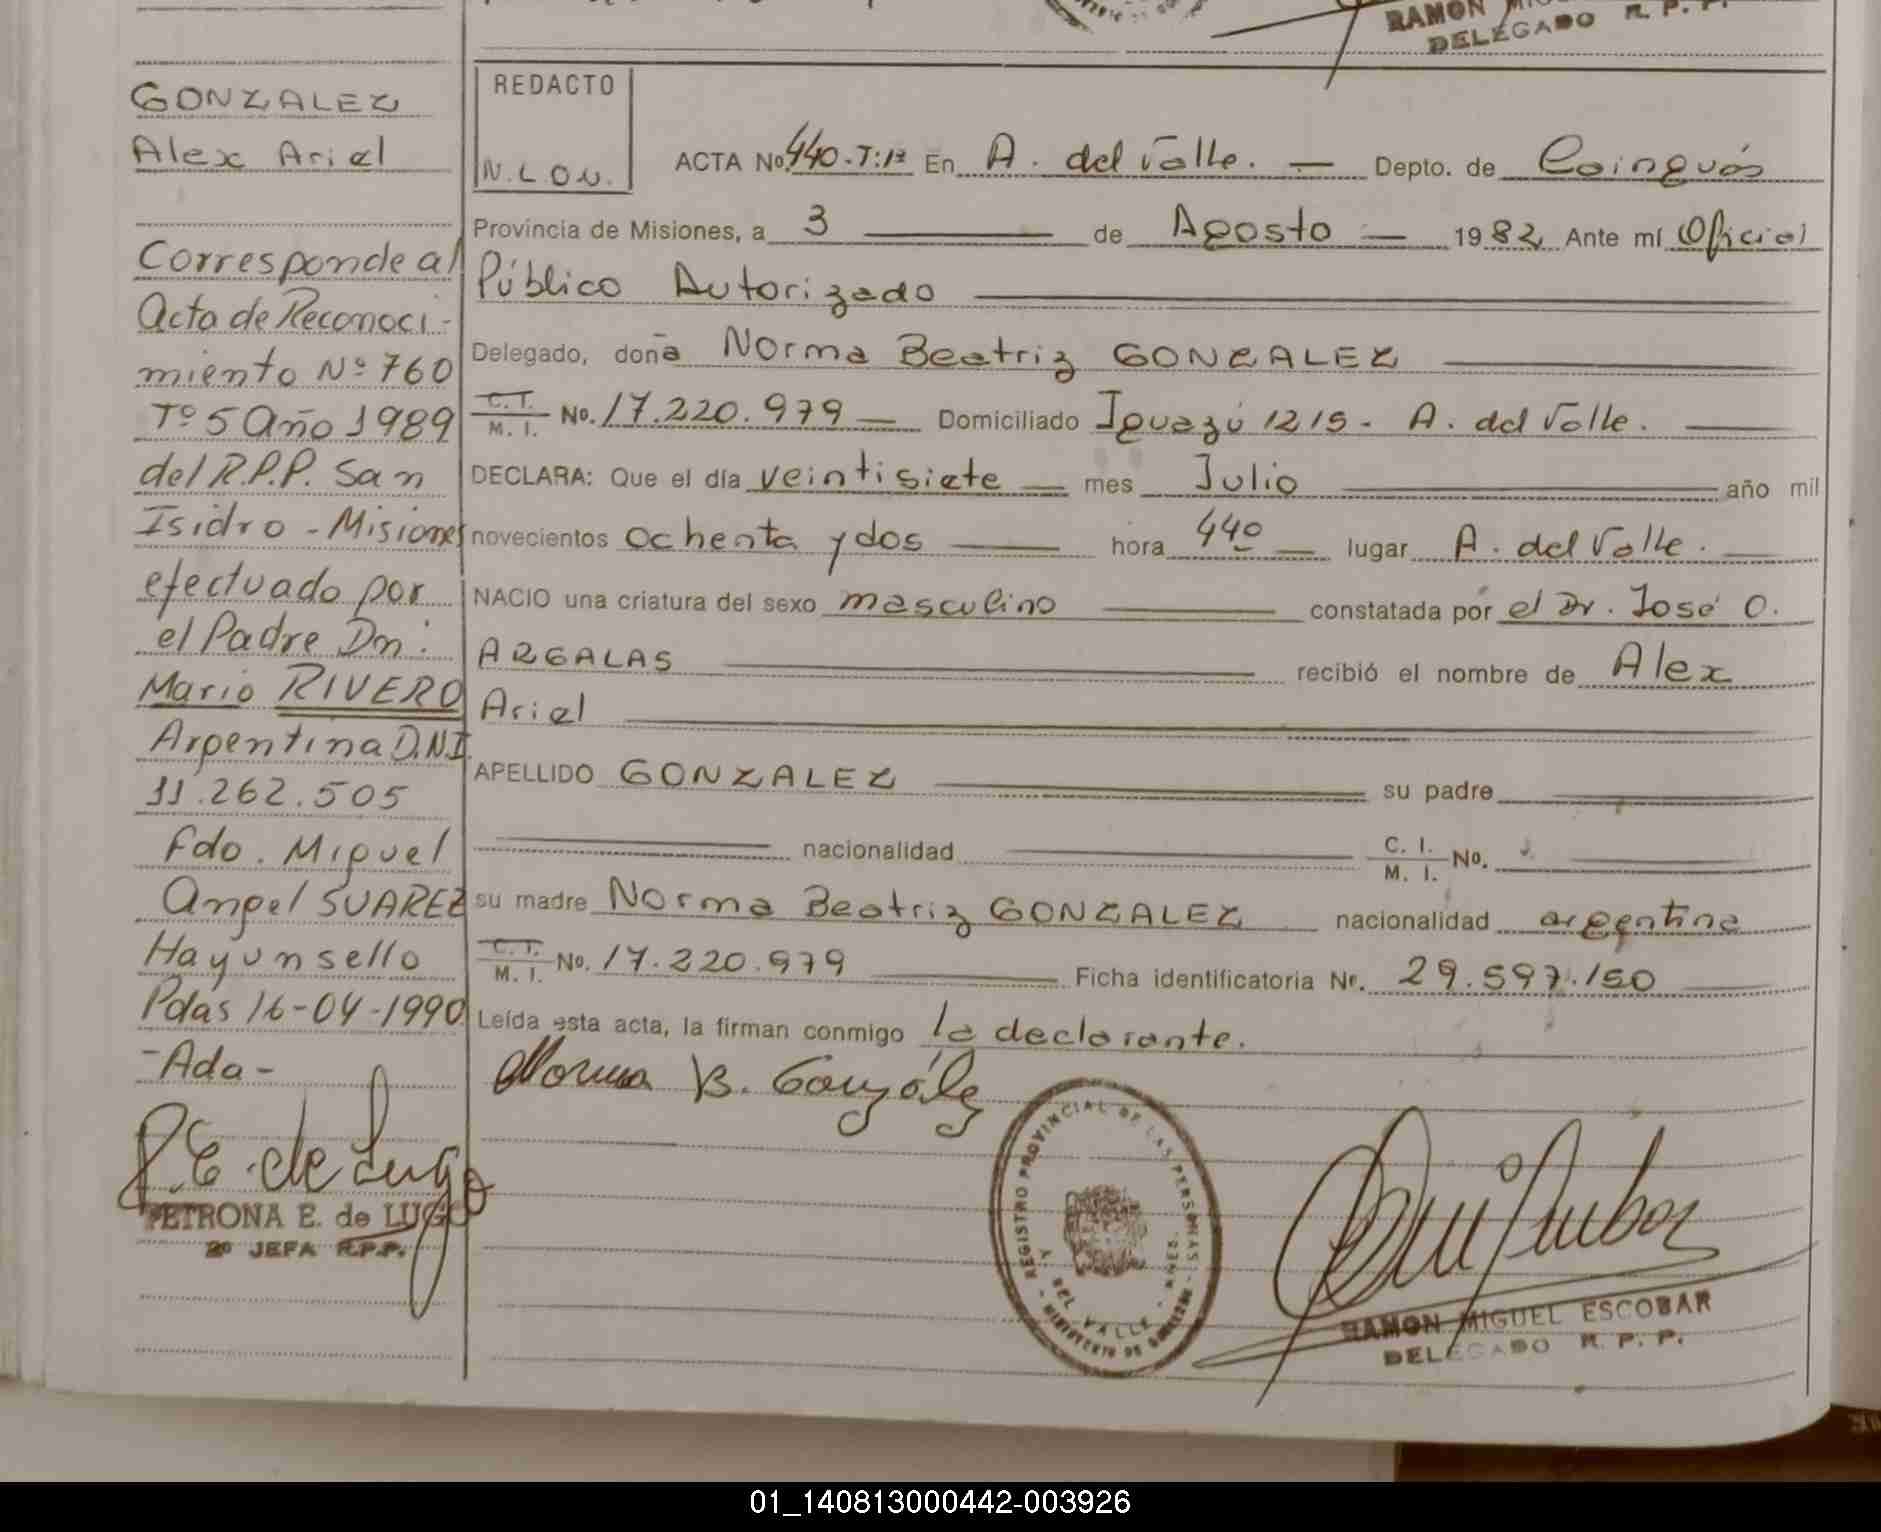 RAMON
DELEGADO R. P. P.
GONZALEZ
Alex Ariel
Corresponde al
Acta de Reconoci-
miento Nº 760
Tº 5 Año 1989
del R.P.P. San
Isidro - Misiones
efectuado por
el Padre Dn:
Mario RIVERO
Argentina D.N.I.
11.262.505
Fdo. Miguel
Angel SUAREZ
Hay un sello
Pdas 16-04-1990
-Ada-
P.E. de Lugo
PETRONA E. de LUGO
2º JEFA R.P.P.
REDACTO
N.L.O.N.
ACTA No. 440.T:1º En A. del Valle. — Depto. de Cainguás
Provincia de Misiones, a 3 — de Agosto — 1982 Ante mí Oficial
Público Autorizado
Delegado, doña Norma Beatriz GONZALEZ
C.I. M. I. No. 17.220.979 — Domiciliado Iguazú 1215 - A. del Valle.
DECLARA: Que el día veintisiete — mes Julio — año mil
novecientos ochenta y dos — hora 440 — lugar A. del Valle.
NACIO una criatura del sexo masculino — constatada por el Dr. José O.
ARGALAS — recibió el nombre de Alex
Ariel
APELLIDO GONZALEZ — su padre
nacionalidad — C. I. M. I. No.
su madre Norma Beatriz GONZALEZ nacionalidad argentina
C.I. M. I. No. 17.220.979 — Ficha identificatoria Nº. 29.597.150
Leída esta acta, la firman conmigo la declarante.
Norma B. González
REGISTRO PROVINCIAL DE LAS PERSONAS - MINISTERIO DE GOBIERNO
A. DEL VALLE - MNES.
RAMON MIGUEL ESCOBAR
DELEGADO R. P. P.
01_140813000442-003926